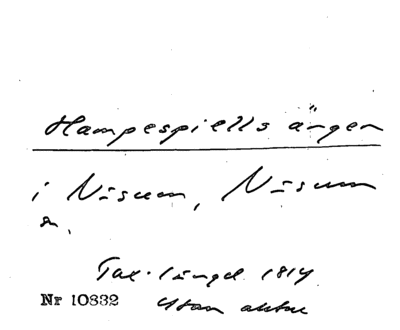 Hampespiells ängen
i Näsum, Näsum
sn.
Tax. längd 1814
Nr 10832 Utan aktnr